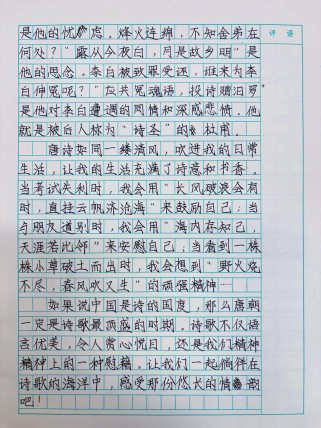 评 语
是他的忧虑,烽火连绵,不知舍弟在
何处?“露从今夜白,月是故乡明”是
他的思念。李白被致罪受诬,谁来为李
白伸冤呢?“应共冤魂语,投诗赠汨罗”
是他对李白遭遇的同情和深感悲愤。他
就是被白人称为“诗圣”的杜甫。
唐诗如同一缕清风,吹进我的日常
生活,让我的生活充满了诗意和书香。
当考试失利时,我会用“长风破浪会有
时,直挂云帆济沧海”来鼓励自己;当
与朋友道别时,我会用“海内存知己,
天涯若比邻”来安慰自己;当看到一株
株小草破土而出时,我会想到“野火烧
不尽,春风吹又生”的顽强精神…
如果说中国是诗的国度,那么唐朝
一定是诗歌最顶盛的时期。诗歌不仅语
言优美,令人赏心悦目,还是我们精神
精神上的一种慰藉。让我们一起徜徉在
诗歌的海洋中,感受那份悠长的情韵
吧!